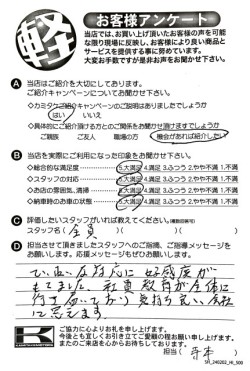 軽
お客様アンケート
当店では、お買い上げ頂いたお客様の声を可能
な限り現場に反映し、お客様により良い商品と
サービスを提供する事に努めています。
大変お手数ですが是非お声をお聞かせ下さい。
A 当店はご紹介を大切にしております。
ご紹介キャンペーンについてお聞かせ下さい。
◇カミタケご紹介キャンペーンのご説明はありましたでしょうか
はい いいえ
◇具体的にご紹介頂ける方とのご関係をお聞かせ頂けますでしょうか
ご親族 ご友人 職場の方 機会があれば紹介したい
B 当店を実際にご利用になった印象をお聞かせ下さい。
◇総合的な満足度 5.大満足 4.満足 3.ふつう 2.やや不満 1.不満
◇スタッフの対応 5.大満足 4.満足 3.ふつう 2.やや不満 1.不満
◇お店の雰囲気、清掃 5.大満足 4.満足 3.ふつう 2.やや不満 1.不満
◇納車時のお車の状態 5.大満足 4.満足 3.ふつう 2.やや不満 1.不満
C 評価したいスタッフがいれば教えてください。(複数回答可)
スタッフ名( 全員 )( )( )
D 担当させて頂きましたスタッフへのご指摘、ご指導メッセージを
お願いします。応援メッセージもぜひお願いします。
ていねいな対応に好感度が
もてました。社員教育が全体に
行き届いており気持ち良い会社
に思えます。
ご協力に心よりお礼を申し上げます。
今後とも宜しくお引き立てご愛顧の程お願い申し上げます。
またのご来店を心からお待ちしております。
担当( 寺本 )